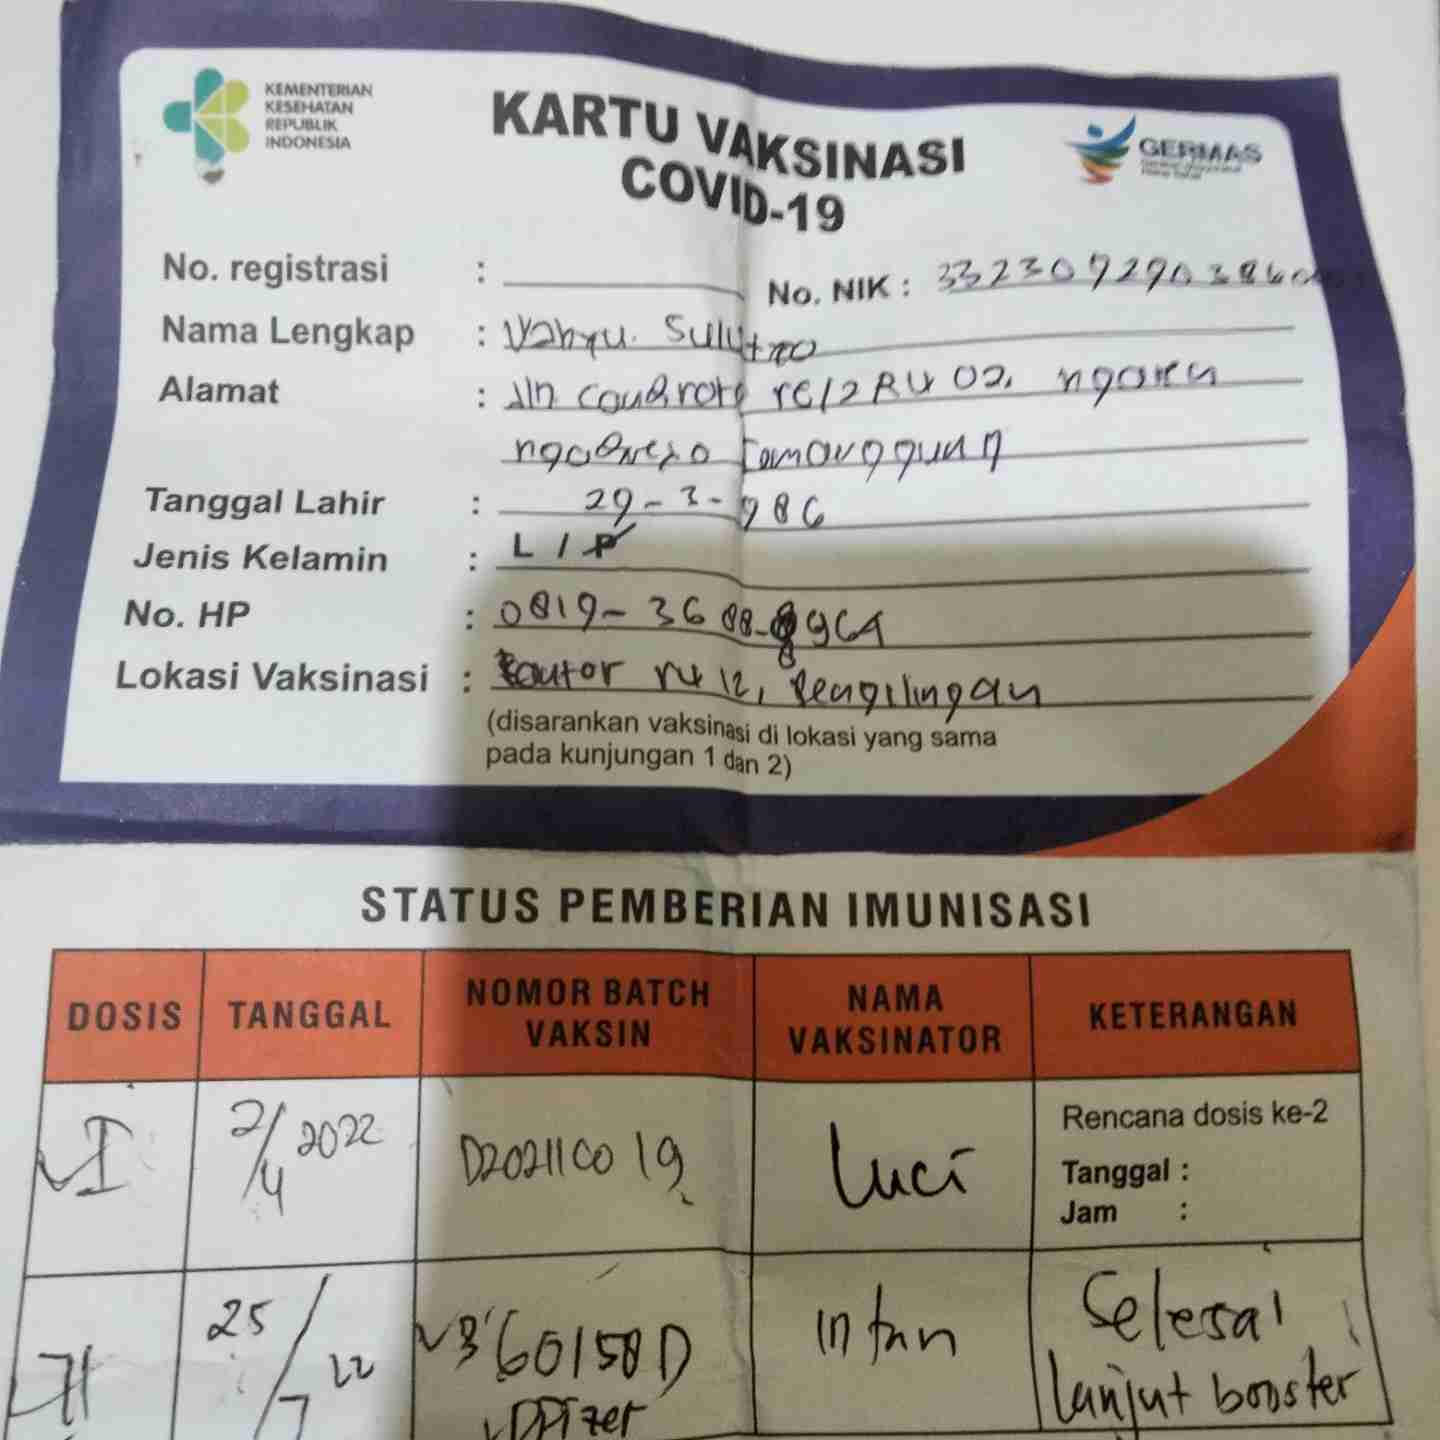 KEMENTERIAN
KESEHATAN
REPUBLIK
INDONESIA
KARTU VAKSINASI
COVID-19
GERMAS
No. registrasi :
No. NIK : 3323072903860
Nama Lengkap : Wahyu Sulistro
Alamat : Jln RW 02, ngaren
ngadirejo Temanggung
Tanggal Lahir : 29-3-986
Jenis Kelamin : L / P
No. HP : 0819-3688-8964
Lokasi Vaksinasi : kantor rw 12, Penggilingan
(disarankan vaksinasi di lokasi yang sama
pada kunjungan 1 dan 2)
STATUS PEMBERIAN IMUNISASI
DOSIS TANGGAL NOMOR BATCH VAKSIN NAMA VAKSINATOR KETERANGAN
I 2/4 2022 D20211C019 Luci Rencana dosis ke-2
Tanggal :
Jam :
II 25/7 22 60158D Intan Selesai
Pfizer lanjut booster